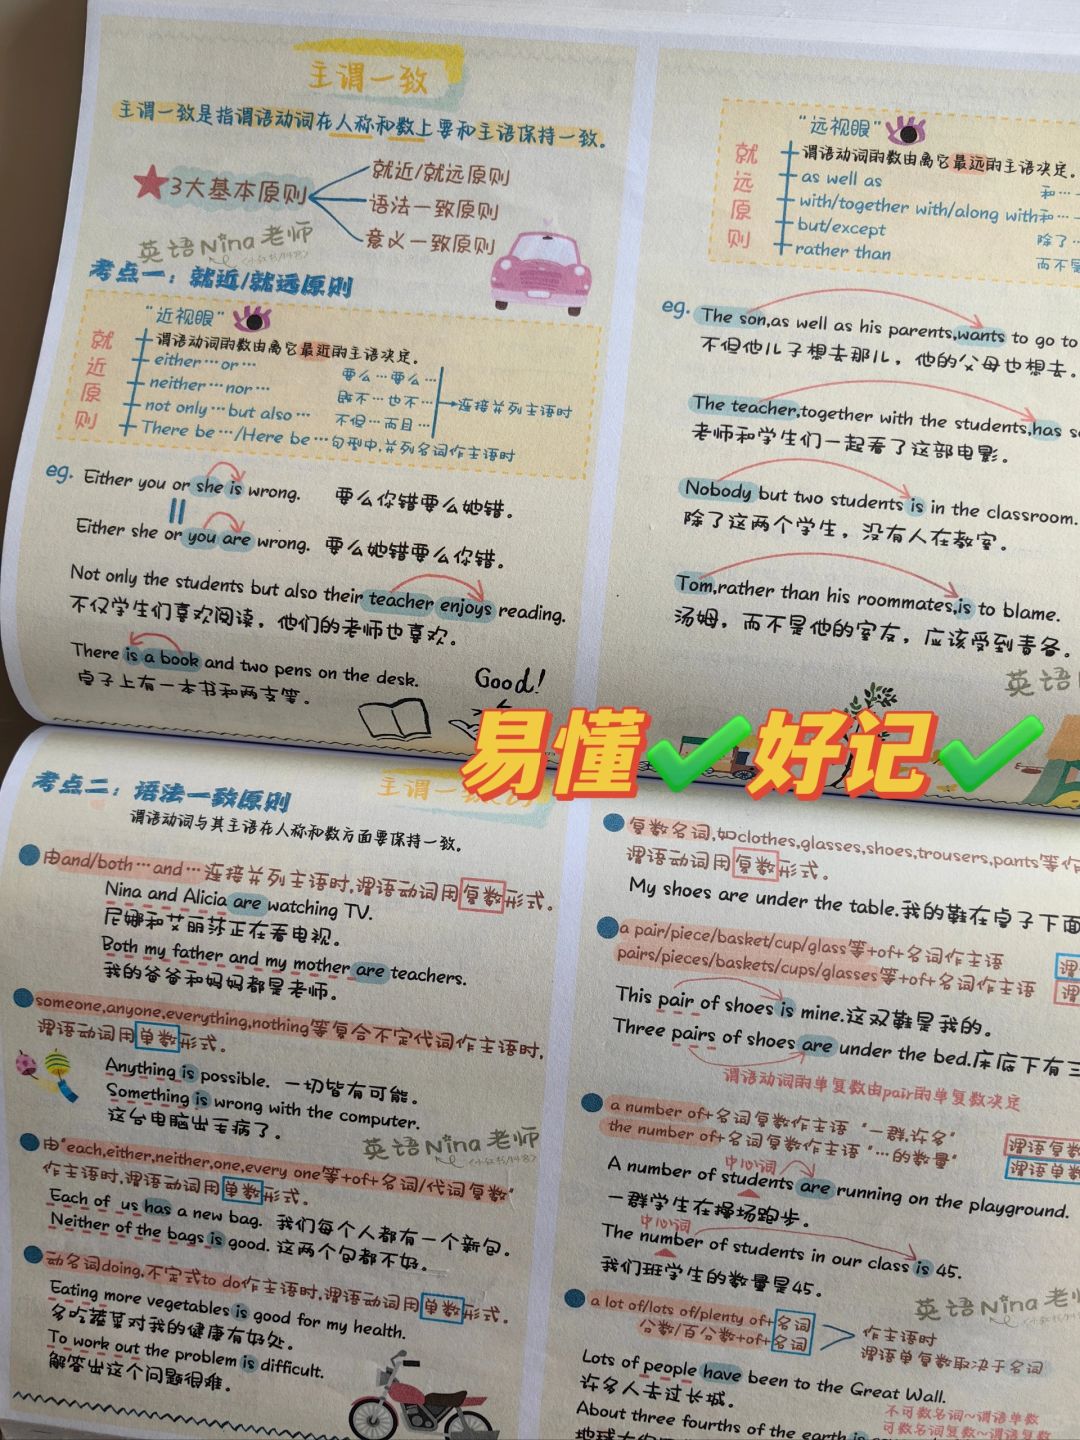 主谓一致
主谓一致是指谓语动词在人称和数上要和主语保持一致。
3大基本原则
就近/就远原则
语法一致原则
意义一致原则
英语Nina老师
考点一：就近/就远原则
就近原则
"近视眼"
谓语动词的数由离它最近的主语决定。
either…or… 要么…要么…
neither…nor… 既不…也不…
not only…but also… 不但…而且…
→连接并列主语时
There be…/Here be…句型中,并列名词作主语时
eg. Either you or she is wrong. 要么你错要么她错。
Either she or you are wrong. 要么她错要么你错。
Not only the students but also their teacher enjoys reading.
不仅学生们喜欢阅读，他们的老师也喜欢。
There is a book and two pens on the desk.
桌子上有一本书和两支笔。
Good!
就远原则
"远视眼"
谓语动词的数由离它最远的主语决定。
as well as
with/together with/along with 和…
but/except 除了…
rather than 而不是
eg. The son,as well as his parents,wants to go to
不但他儿子想去那儿，他的父母也想去。
The teacher,together with the students,has
老师和学生们一起看了这部电影。
Nobody but two students is in the classroom.
除了这两个学生，没有人在教室。
Tom,rather than his roommates,is to blame.
汤姆，而不是他的室友，应该受到责备。
英语
易懂✔好记✔
考点二：语法一致原则
主谓一致
谓语动词与其主语在人称和数方面要保持一致。
由and/both…and…连接并列主语时,谓语动词用复数形式。
Nina and Alicia are watching TV.
尼娜和艾丽莎正在看电视。
Both my father and my mother are teachers.
我的爸爸和妈妈都是老师。
someone,anyone,everything,nothing等复合不定代词作主语时,
谓语动词用单数形式。
Anything is possible. 一切皆有可能。
Something is wrong with the computer.
这台电脑出毛病了。
英语Nina老师
由"each,either,neither,one,every one等+of+名词/代词复数"
作主语时,谓语动词用单数形式。
Each of us has a new bag. 我们每个人都有一个新包。
Neither of the bags is good. 这两个包都不好。
动名词doing,不定式to do作主语时,谓语动词用单数形式。
Eating more vegetables is good for my health.
多吃蔬菜对我的健康有好处。
To work out the problem is difficult.
解答出这个问题很难。
复数名词,如clothes,glasses,shoes,trousers,pants等作
谓语动词用复数形式。
My shoes are under the table.我的鞋在桌子下面
a pair/piece/basket/cup/glass等+of+名词作主语
pairs/pieces/baskets/cups/glasses等+of+名词作主语
This pair of shoes is mine.这双鞋是我的。
Three pairs of shoes are under the bed.床底下有三
谓语动词的单复数由pair的单复数决定
a number of+名词复数作主语 "一群,许多" 谓语复数
the number of+名词复数作主语 "…的数量" 谓语单数
中心词
A number of students are running on the playground.
一群学生在操场跑步。
中心词
The number of students in our class is 45.
我们班学生的数量是45。
英语Nina老
a lot of/lots of/plenty of+名词
分数/百分数+of+名词
作主语时
谓语单复数取决于名词
Lots of people have been to the Great Wall.
许多人去过长城。
不可数名词~谓语单数
可数名词复数~谓语复数
About three fourths of the earth is